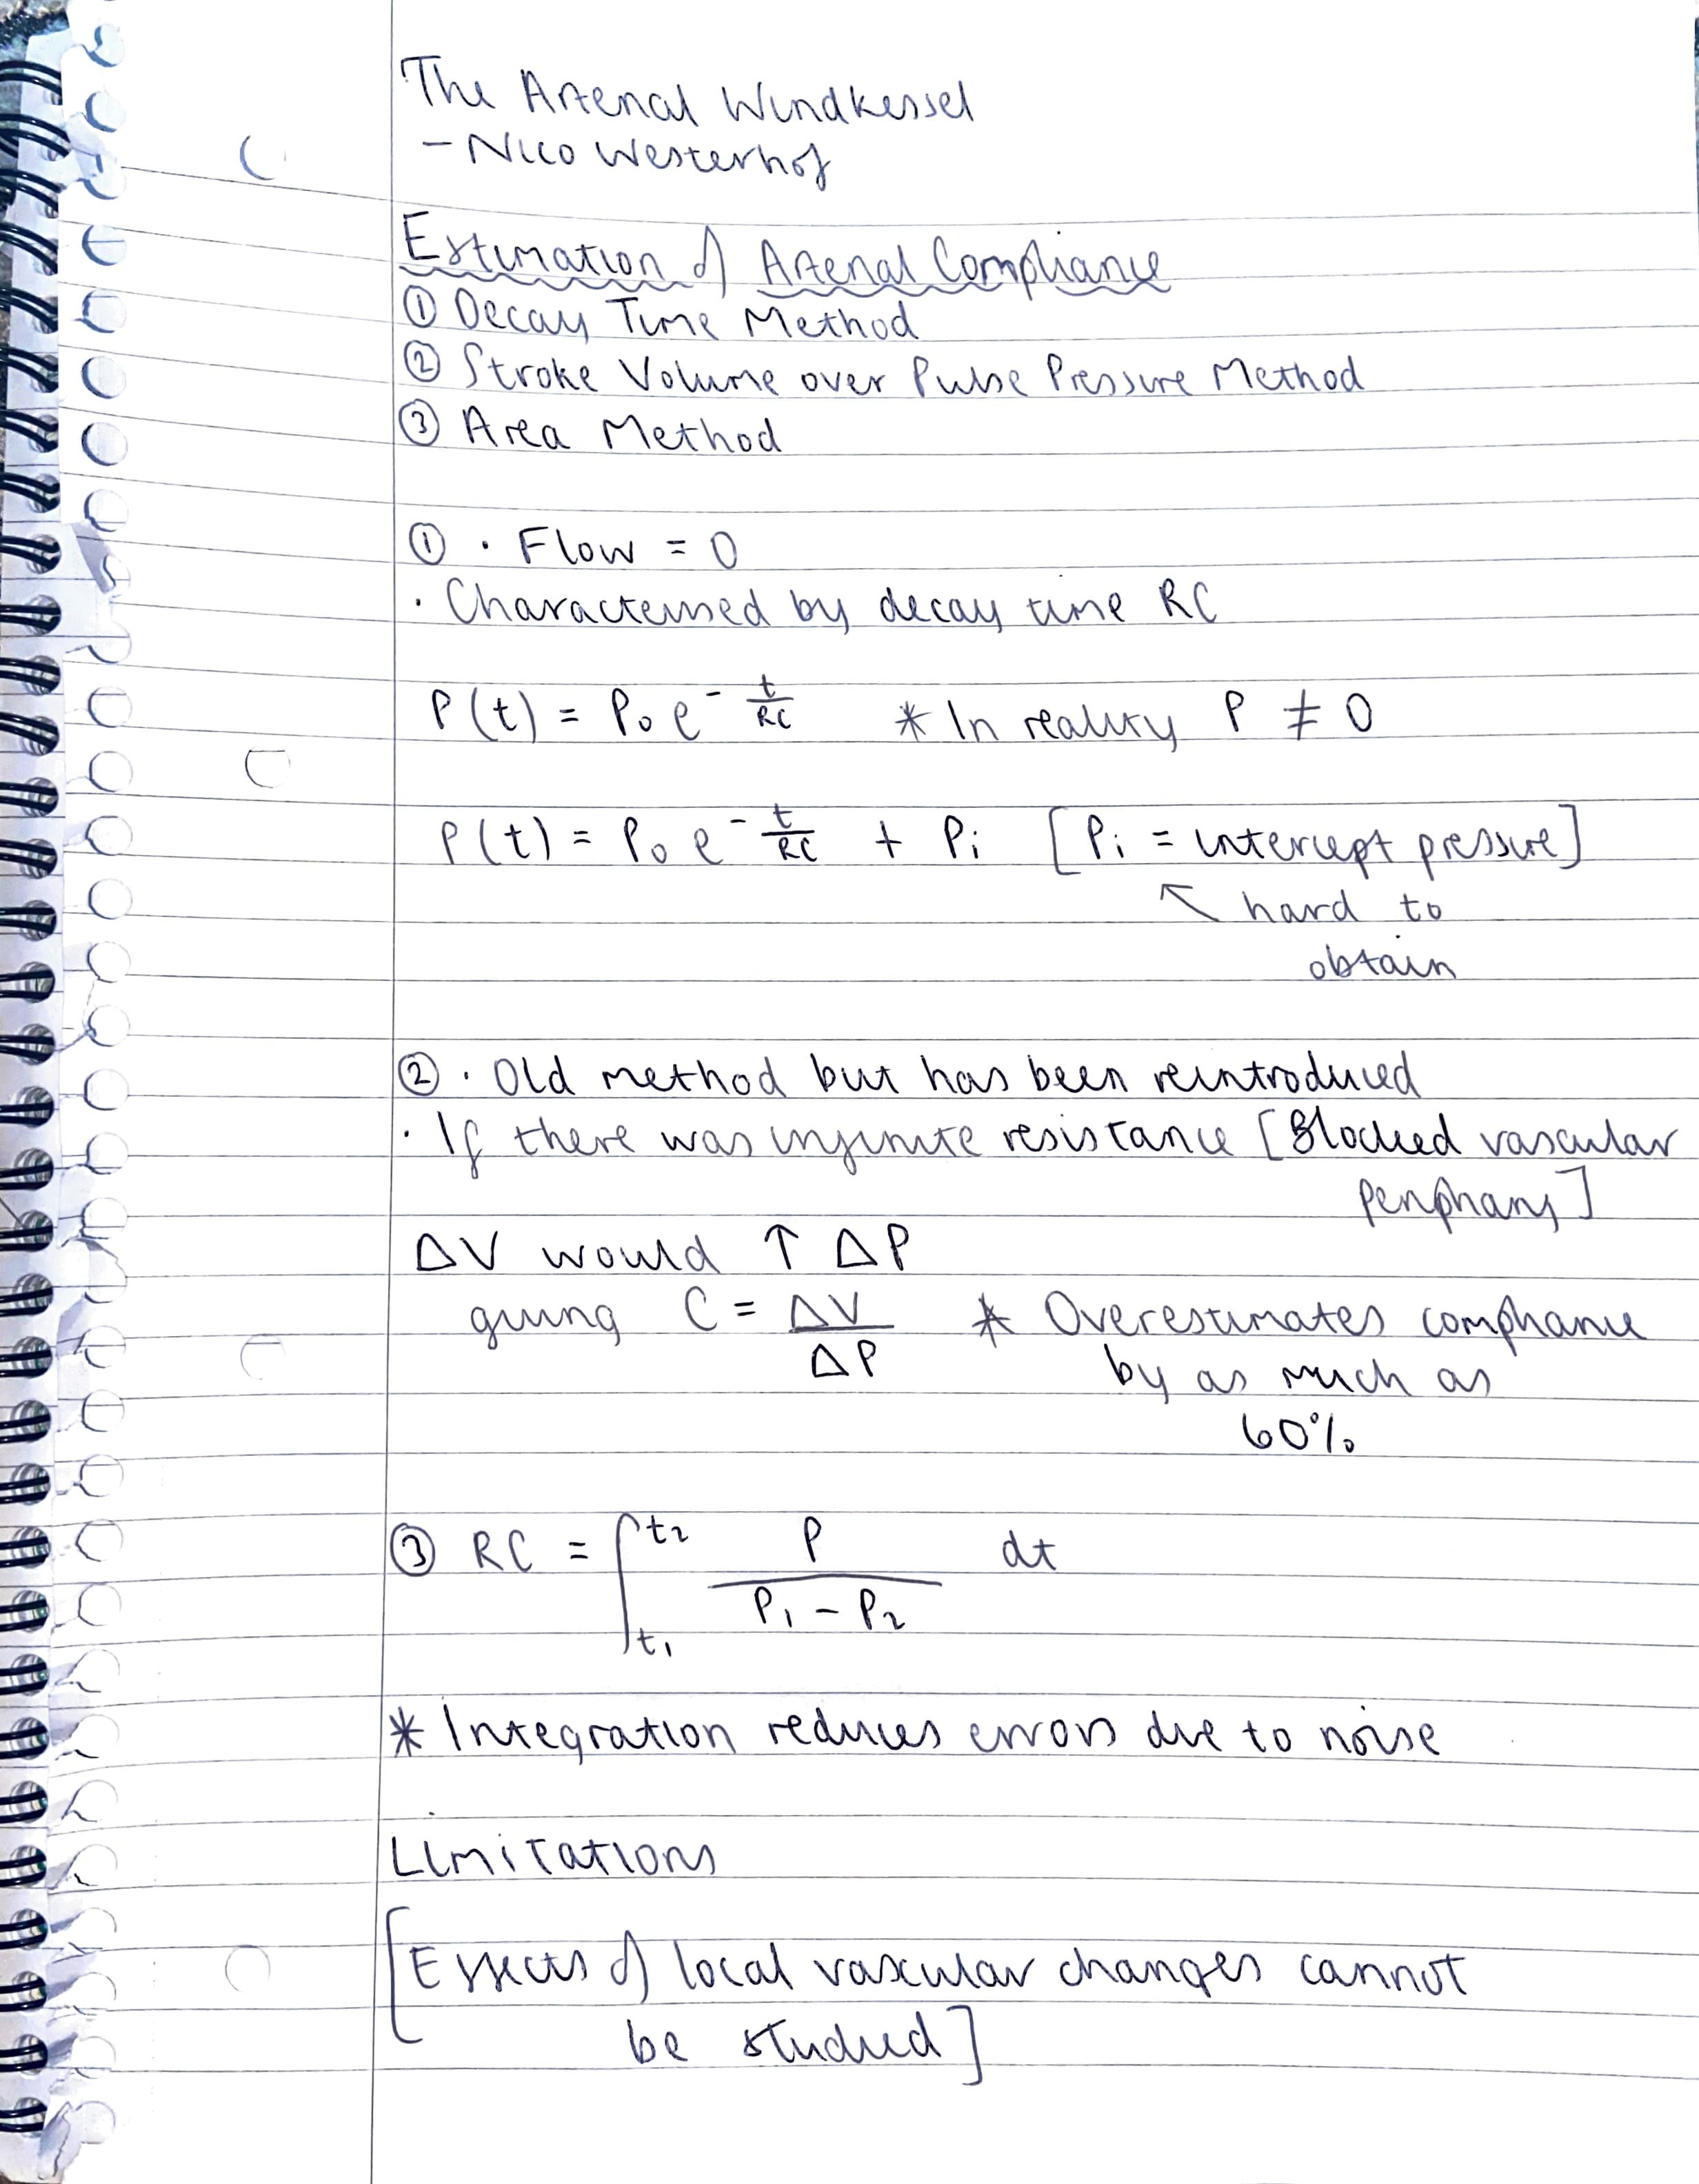 The Arterial Windkessel
- Nico Westerhof
Estimation of Arterial Compliance
① Decay Time Method
② Stroke Volume over Pulse Pressure Method
③ Area Method
① · Flow = 0
· Characterised by decay time RC
P(t) = P₀ e^(-t/RC) * In reality P ≠ 0
P(t) = P₀ e^(-t/RC) + Pᵢ [Pᵢ = intercept pressure]
↖ hard to
obtain
② · Old method but has been reintroduced
· If there was infinite resistance [Blocked vascular
periphary]
ΔV would ↑ ΔP
giving C = ΔV/ΔP * Overestimates compliance
by as much as
60%
③ RC = ∫_{t₁}^{t₂} P/(P₁ - P₂) dt
* Integration reduces errors due to noise
Limitations
[Effects of local vascular changes cannot
be studied]